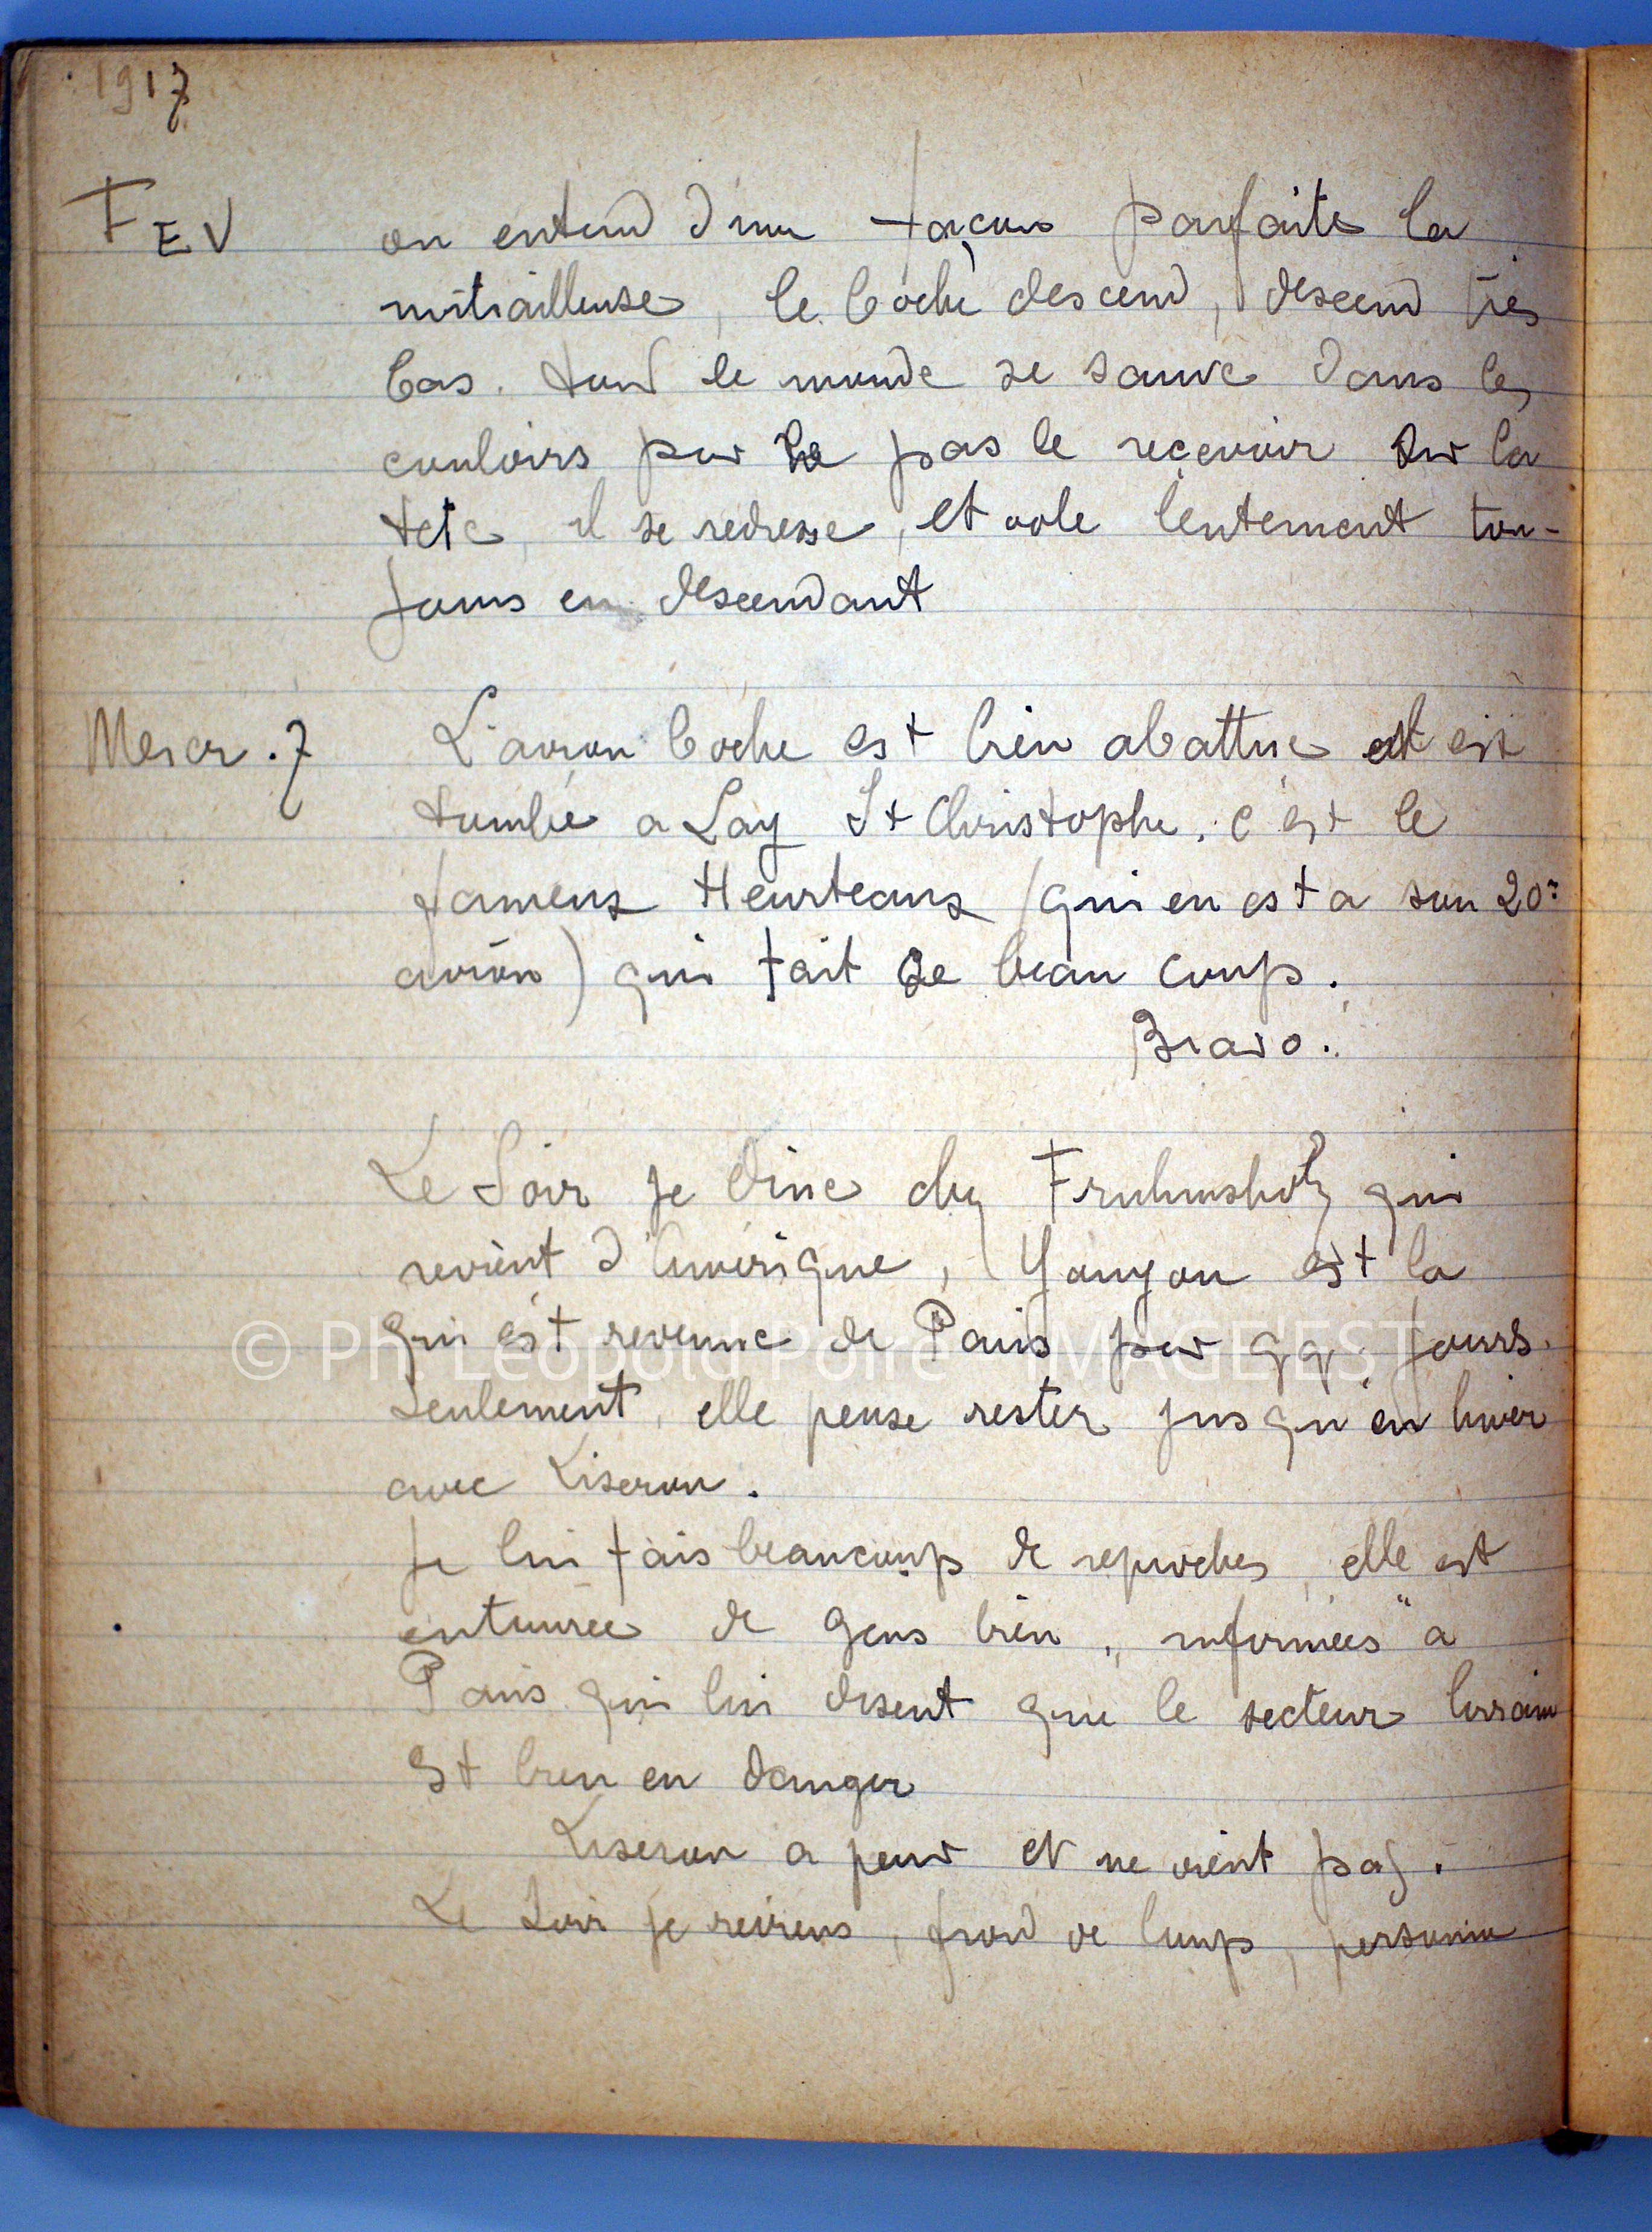 1917
FEV on entend d'une façon parfaite la
mitrailleuse, le boche descend, descend très
bas. tout le monde se sauve dans les
couloirs pour ne pas le recevoir sur la
tete, il se redresse, et vole lentement tou-
jours en descendant
Mercr. 7 L'avion boche est bien abattue et est
tombée a Lay St Christophe, c'est le
fameux Heurteaux (qui en est a son 20e
avion) qui fait ce beau coup.
Bravo.
Le Soir je dine chez Fruhinsholz qui
revient d'Amérique, Yauyau est la
qui est revenue de Paris pour qq. jours
seulement, elle pense rester jusqu'en hiver
avec Liseron.
Je lui fais beaucoup de reproches, elle est
entourée de gens bien „informées" a
Paris qui lui disent que le secteur lorrain
est bien en danger
Liseron a peur et ne vient pas.
Le Soir je reviens, froid de loups, personne
© Ph. Léopold Poiré IMAGE'EST